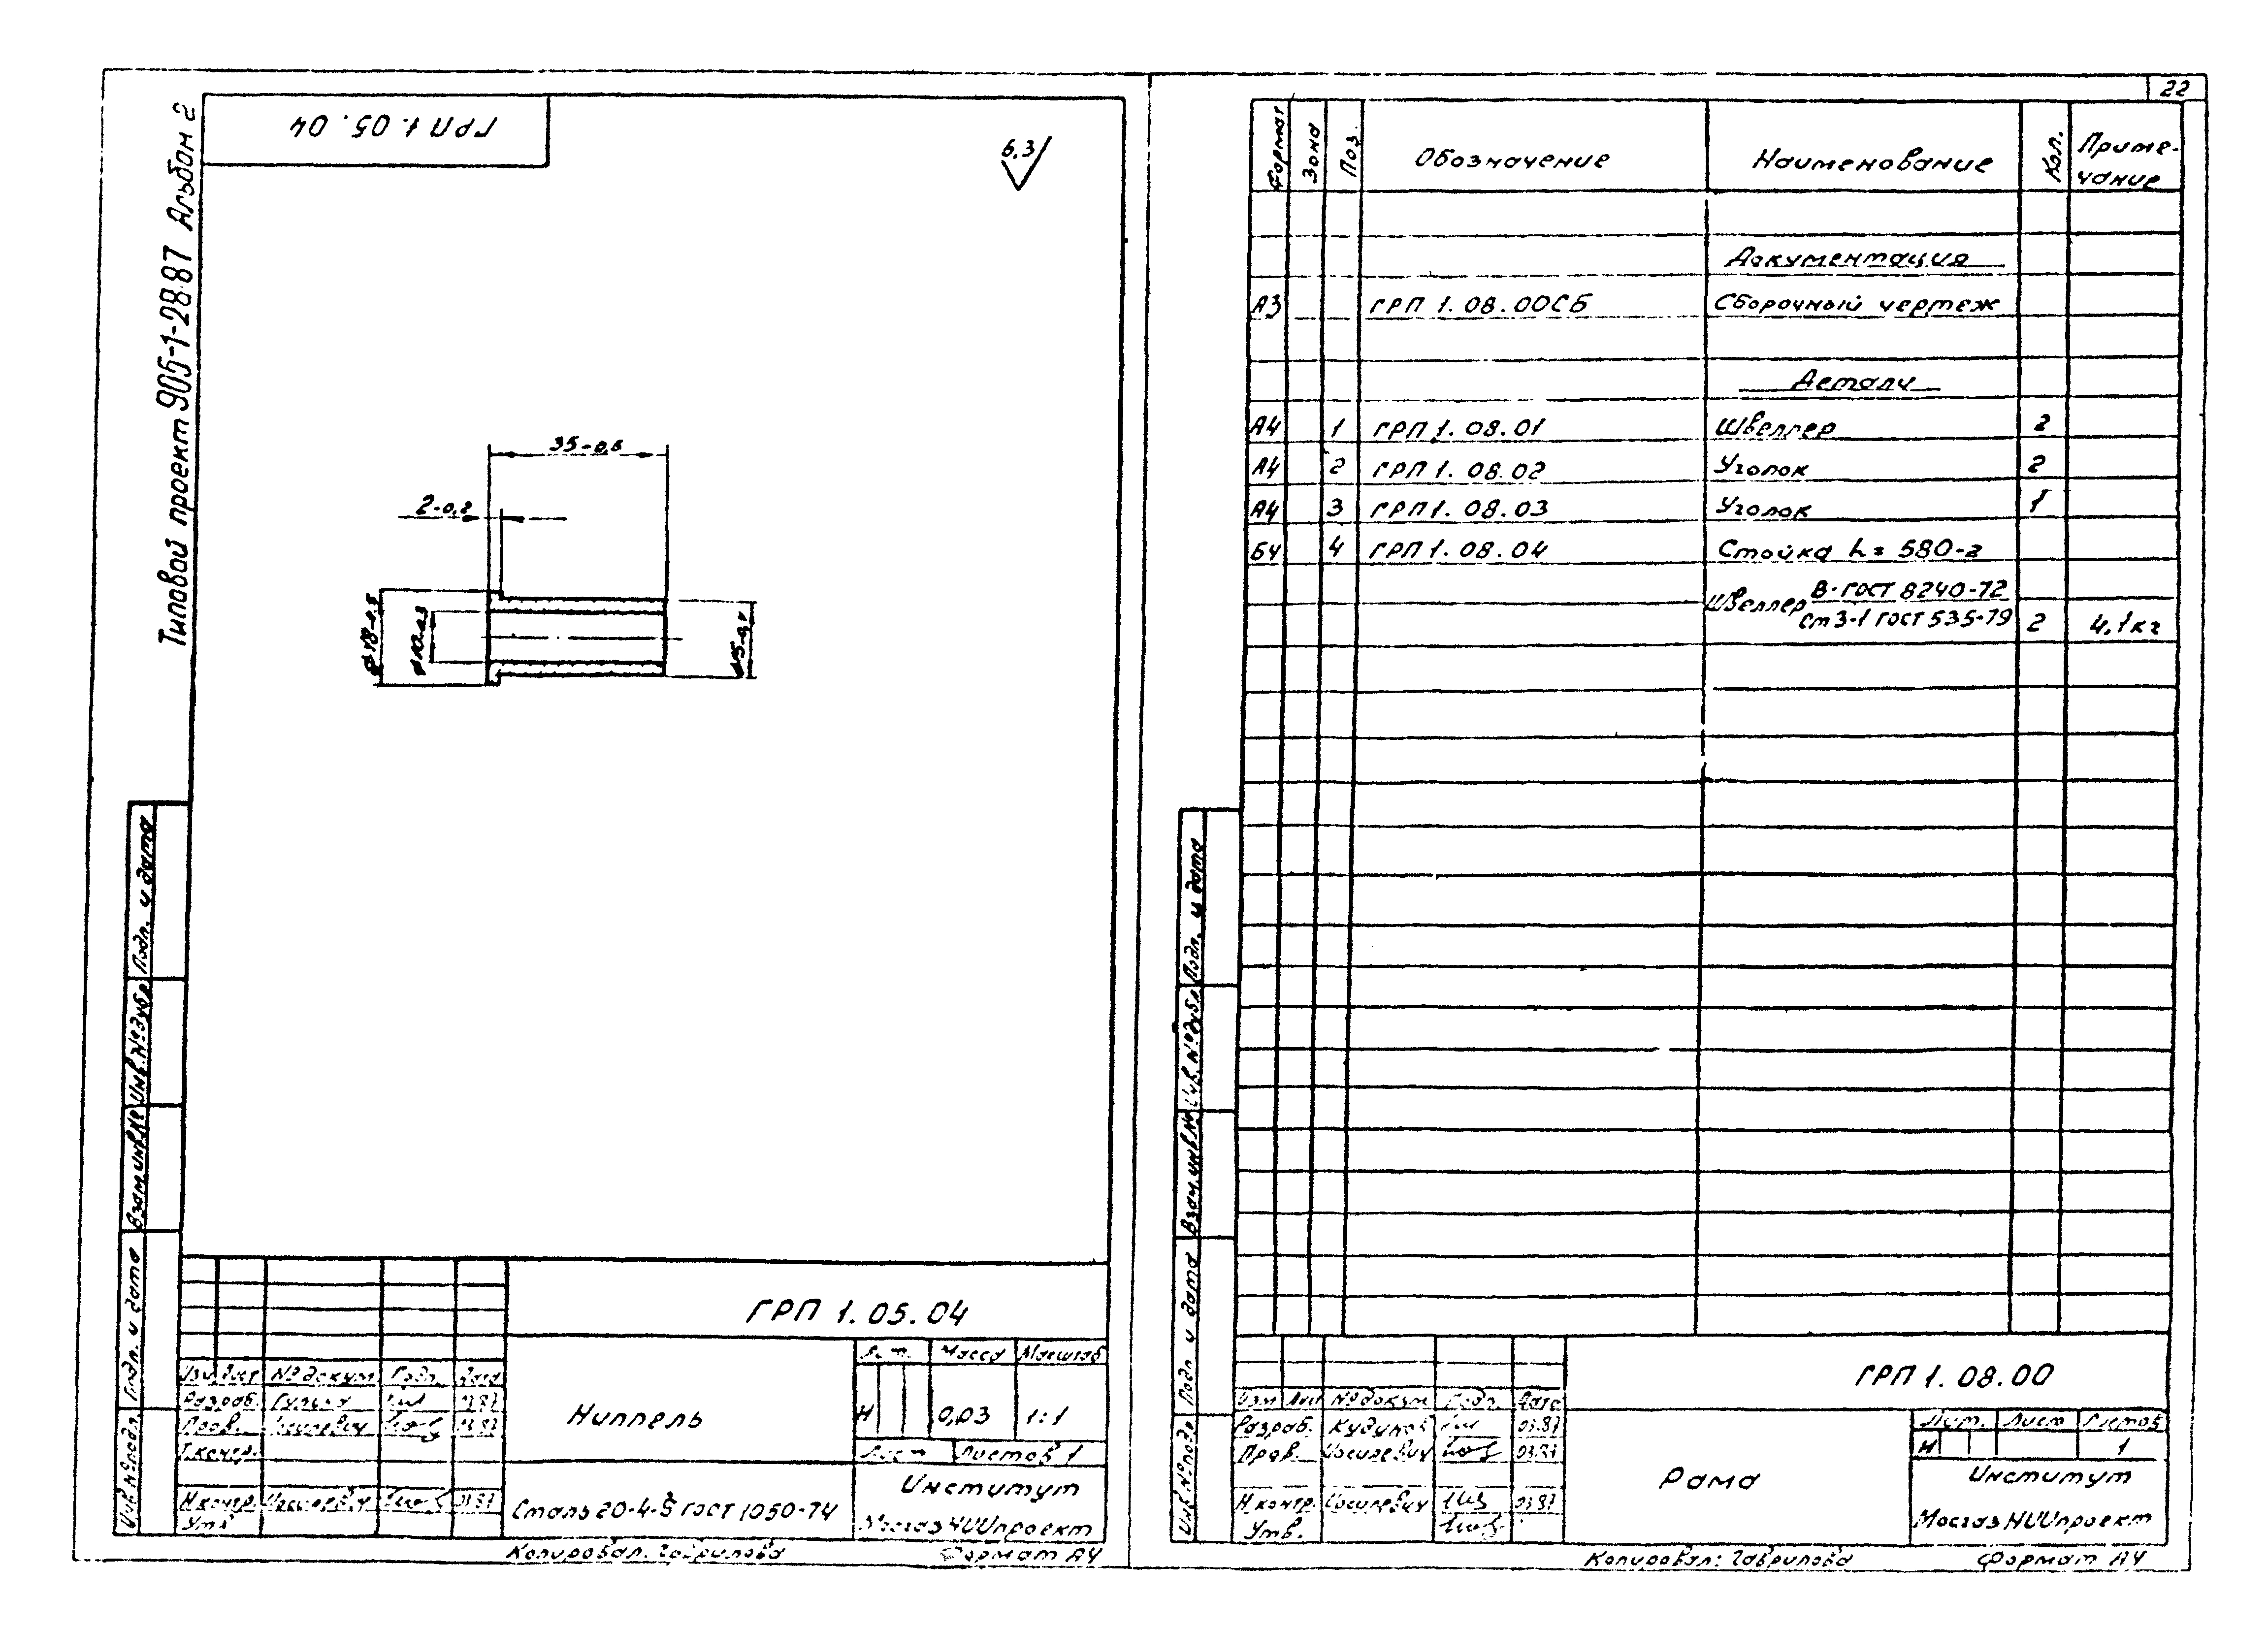 22
Типовой проект 905-1-28.87 Альбом 2
ГРП 1.05.04
6,3
35-0,6
2-0,2
⌀18-0,5
⌀10-0,3
⌀15-0,4
Подп. и дата
Инв.№дубл
Взам.инв.№
Подп. и дата
Инв.№подл.
ГРП 1.05.04
Изм Лист № докум Подп. Дата
Разраб. 03.87
Пров. Иосилевич 03.87
Т.контр.
Н.контр. Иосилевич 03.87
Утв
Ниппель
Лит. Масса Масштаб
Н 0,03 1:1
Лист Листов 1
Сталь 20-4-б ГОСТ 1050-74
Институт
МосгазНИИпроект
Копировал: Гаврилова Формат А4
Формат Зона Поз. Обозначение Наименование Кол. Приме-
чание
Документация
А3 ГРП 1.08.00СБ Сборочный чертеж
Детали
А4 1 ГРП 1.08.01 Швеллер 2
А4 2 ГРП 1.08.02 Уголок 2
А4 3 ГРП 1.08.03 Уголок 1
БЧ 4 ГРП 1.08.04 Стойка L=580-2
Швеллер 8-ГОСТ 8240-72
Ст3-1 ГОСТ 535-79 2 4,1кг
Подп. и дата
Инв.№дубл
Взам.инв.№
Подп. и дата
Инв.№подл
ГРП 1.08.00
Изм Лист № докум Подп. Дата
Разраб. Кудинов 03.87
Пров. Иосилевич 03.87
Н.контр. Иосилевич 03.87
Утв.
Рама
Лит. Лист Листов
Н 1
Институт
МосгазНИИпроект
Копировал: Гаврилова Формат А4